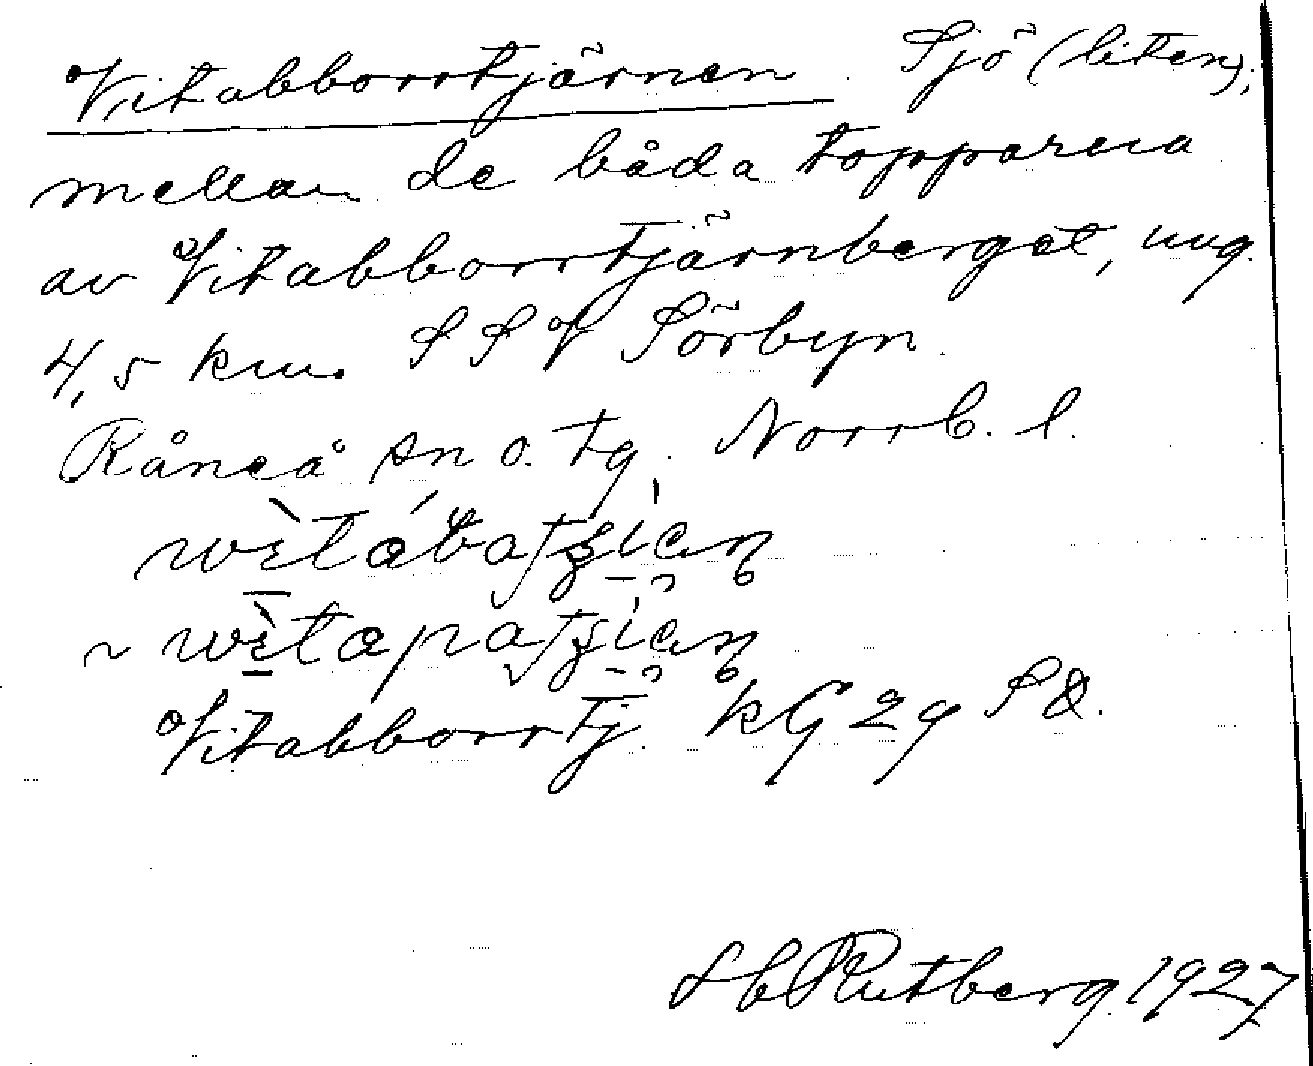 Vitabborrtjärnen. Sjö (liten),
mellan de båda topparna
av Vitabborrtjärnberget, ung.
4,5 km. SSV Sörbyn.
Råneå sn o. tg. Norrb. l.
Vitabborrtj. kG 29 SO.
Rutberg. 1927